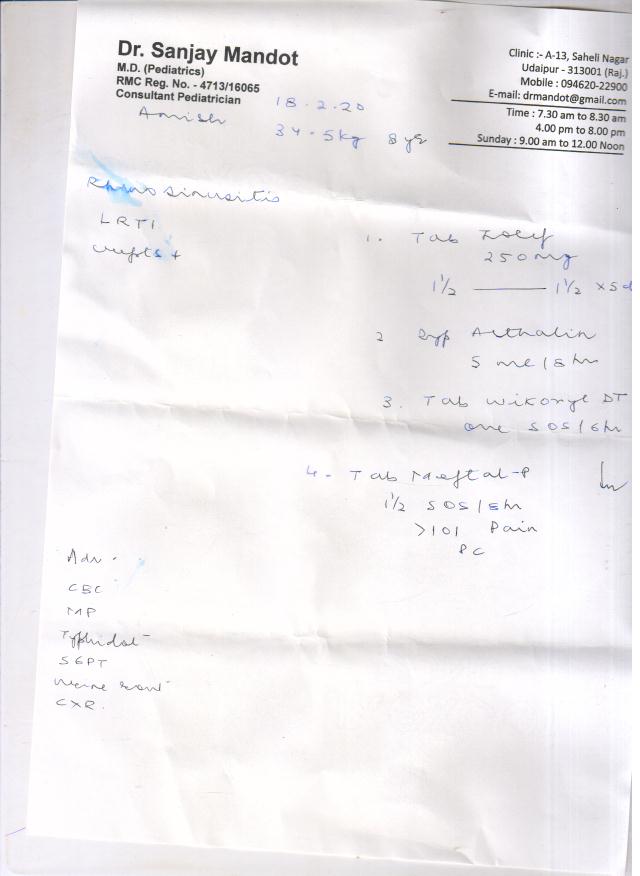 Dr. Sanjay Mandot
M.D. (Pediatrics)
RMC Reg. No. - 4713/16065
Consultant Pediatrician
Clinic :- A-13, Saheli Nagar
Udaipur - 313001 (Raj.)
Mobile : 094620-22900
E-mail: drmandot@gmail.com
Time : 7.30 am to 8.30 am
4.00 pm to 8.00 pm
Sunday : 9.00 am to 12.00 Noon
18.2.20
34.5kg 8 yr
Rhinosinusitis
LRTI
1. Tab
250mg
1½ — 1½ x 5d
2 Syp Asthalin
5 ml / 8 hr
3. Tab Wikoryl DT
one SOS / 6hr
4. Tab Meftal-P
1½ SOS / 8hr
>101 Pain
PC
Adv.
CBC
MP
Typhidot
SGPT
CXR.